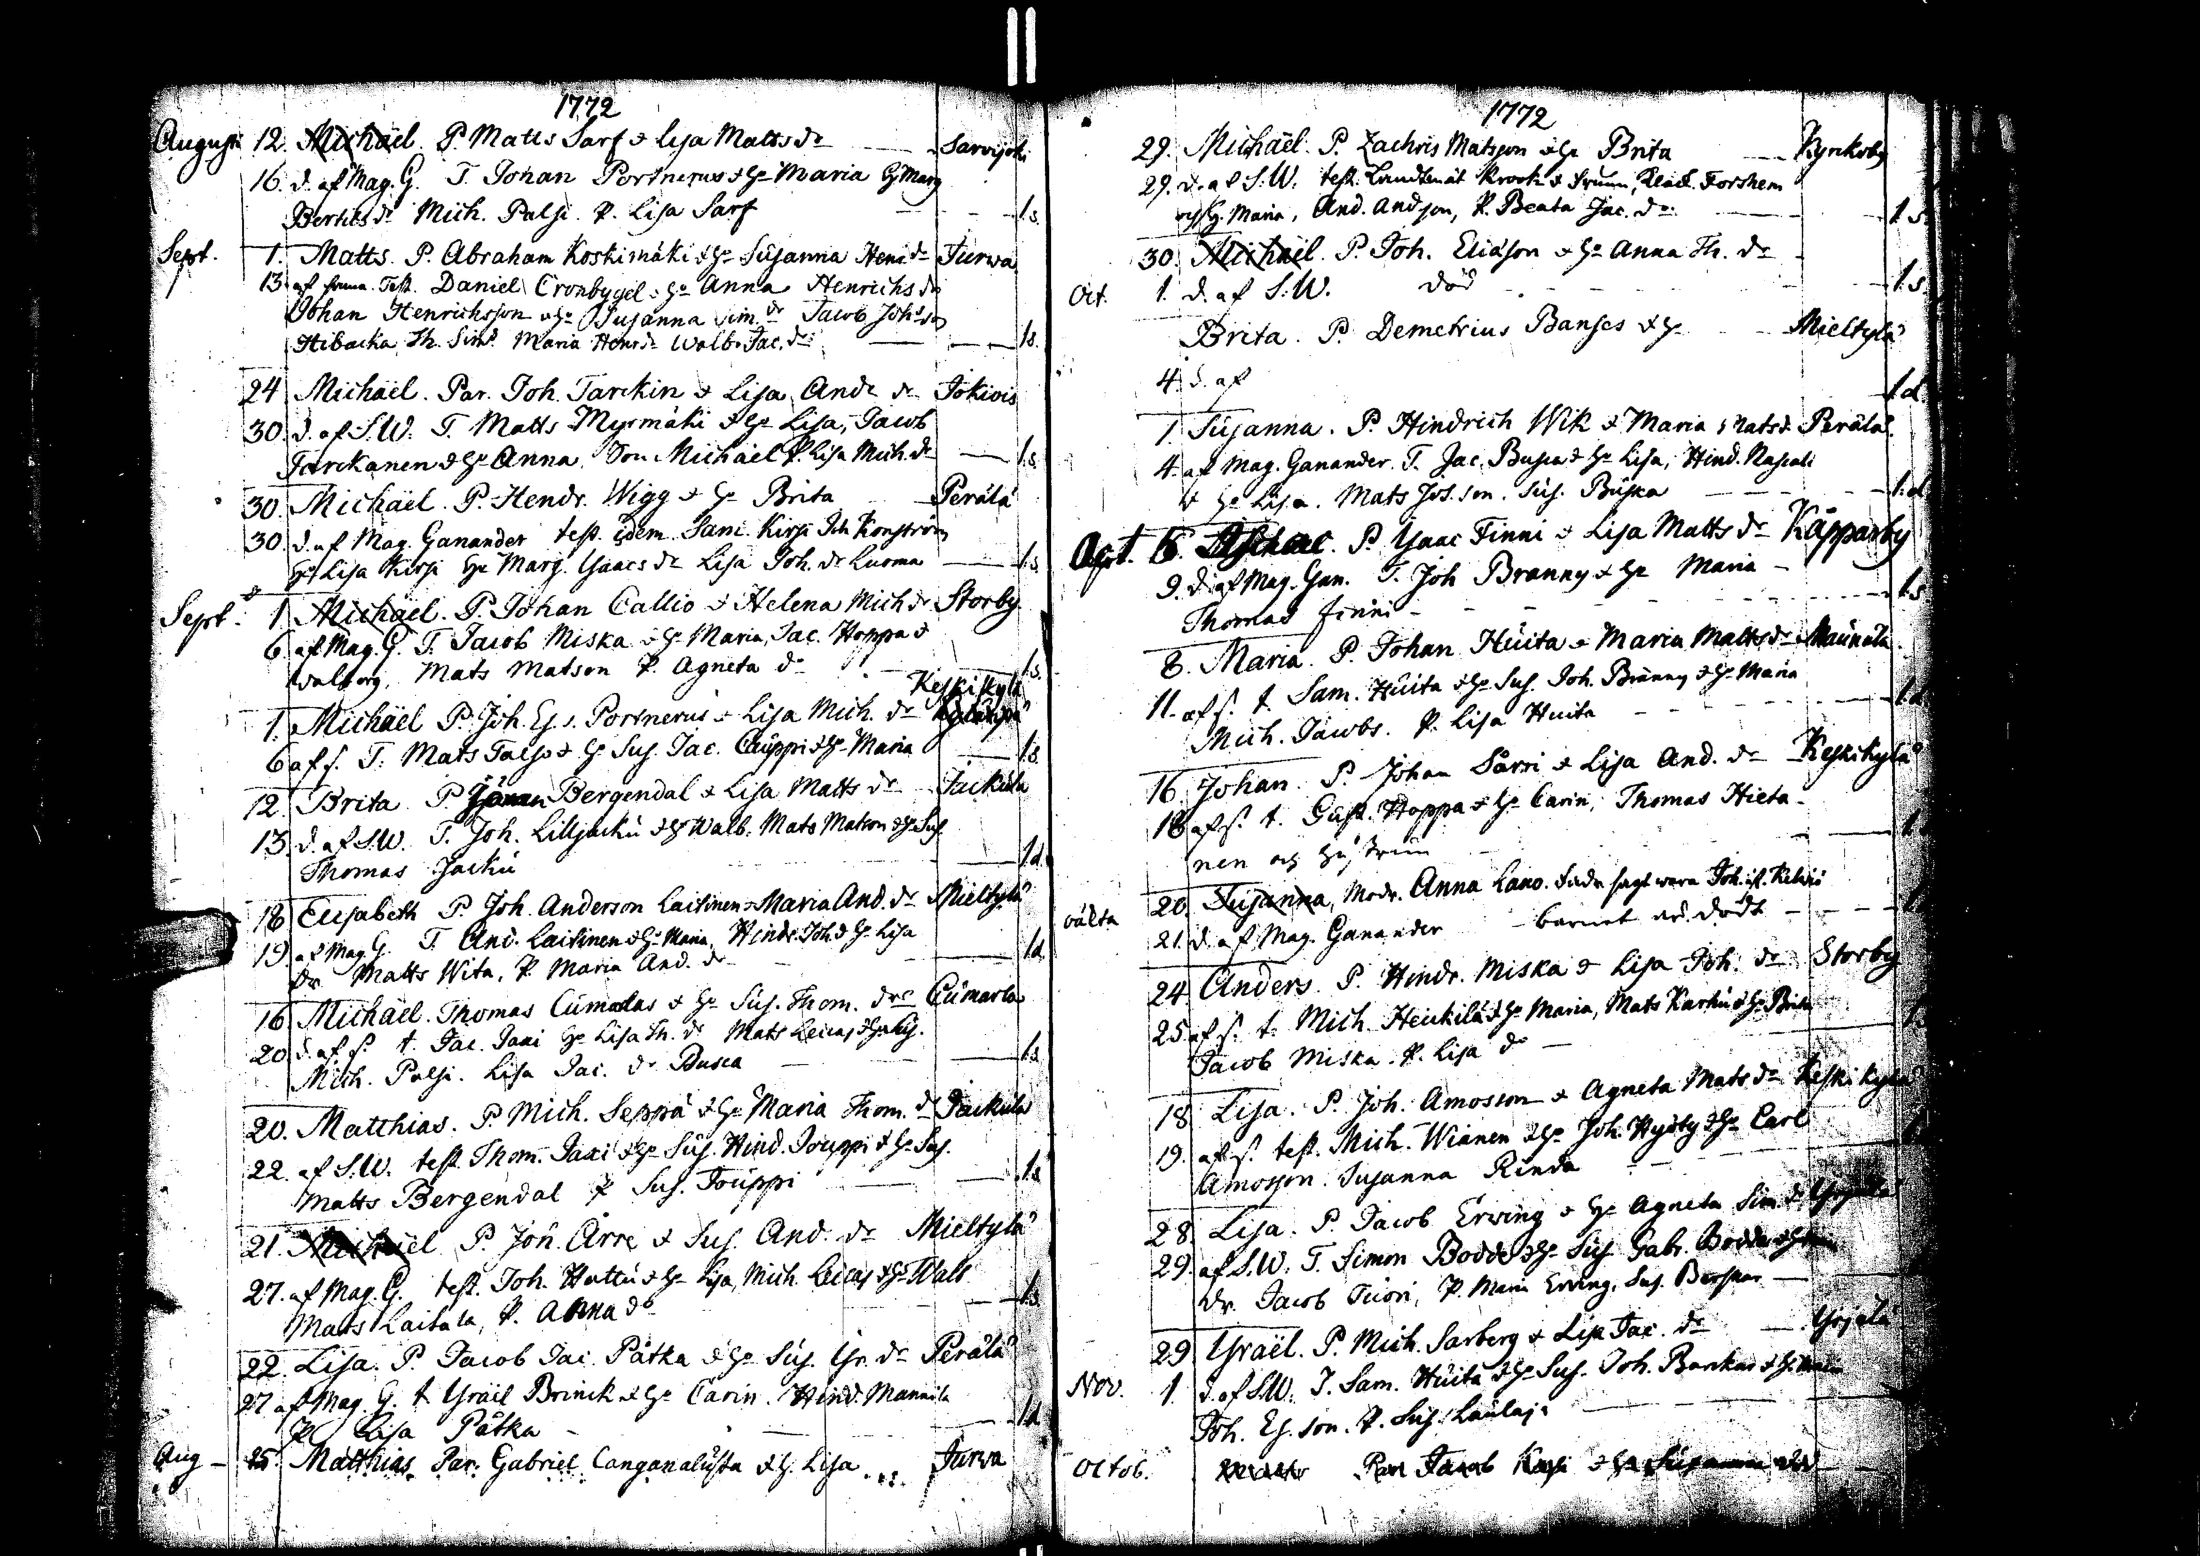 1772
Augusti 12. Michaël. P. Matts Sarf & Lisa Matts dr Sarvijoki
16. d. af Mag. G. T. Johan Portnerus & hu Maria Marg
Bertils dr Mich. Palsi. P. Lisa Sarf 1 s.
Sept. 1. Matts. P. Abraham Koskimäki & hu Susanna Henr dr Jurwa
13 af Test. Daniel Cronbygel hu Anna Henrichs dr
Johan Henrichsson & hu Susanna Sim. dr Jacob Johsson
Hibacka Th. Simd. Maria Henr dr Walb. Jac. dr 1 s.
24 Michaël. Par. Joh. Tarckin & Lisa And. dr Jokivis
30. d. af S.W. T. Matts Myrmäki & hu Lisa, Jacob
Tarckanen & hu Anna Son Michaël P. Lisa Mich. dr 1 s.
30. Michaël. P. Hendr. Wigg & hu Brita Perälä
30 d. af Mag. Ganander test. idem Sam. Kirsi Joh Konström
hu Lisa Kirsi hu Marg. Isaacs dr Lisa Joh. dr Luoma 1 s.
Sept. 1 Michaël. P. Johan Callio & Helena Mich dr Storby
6 af Mag. G. T. Jacob Miska & hu Maria, Jac. Hoppa &
Walborg, Mats Matson P. Agneta dr 1 s.
Keskikylä
1. Michaël P. Joh. Es. s. Portnerus & Lisa Mich. dr
6 af s. T. Mats Talso & hu Sus. Jac. Cauppi & hu Maria 1 s.
12. Brita P. Bergendal & Lisa Matts dr Jackula
13. d. af S.W. T. Joh. Lilljacku & hu Walb. Mats Matson & hu Sus
Thomas Jacku 1 d.
18 Elisabeth P. Joh. Anderson Laitinen & Maria And. dr Mieltylä
19 af Mag. G. T. And. Laitinen & hu Maria, Hindr. Joh. & hu Lisa
dr Matts Wita, P. Maria And. dr 1 d
16 Michaël. Thomas Cumalas & hu Sus. Thom. dr Cumarla
20 d. af s. t. Jac. Jaxi hu Lisa Th. dr Mats Leicas & hu Lis.
Mich. Palsi. Lisa Jac. dr Busca 1 s.
20. Matthias. P. Mich. Seppä & hu Maria Thom. dr Jackula
22. af S.W. test. Thom. Jaxi & hu Sus. Hind. Jouppi & hu Sus.
Matts Bergendal P. Sus. Jouppi 1 s.
21. Michaël P. Joh. Arre & Sus. And. dr Mieltylä
27. af Mag. G. test. Joh. Hattu & hu Lisa, Mich. Leicas & hu Walb
Mats Laitala, P. Anna dr 1 s.
22. Lisa. P. Jacob Jac. Pätka & hu Sus. Isr. dr Perälä
27 af Mag. G. t Israël Brinck & hu Carin. Hind. Mannila
P. Lisa Pätka 1 d.
Aug 25 Matthias. Par. Gabriel Canganalusta & h. Lisa Jurva
1772
29. Michaël. P. Zachris Matsson & hu Brita Kyrkoby
29. d. af S.W. test. Landtmät Krook & fruun, Forshem
Maria, And. Andson, P. Beata Jac. dr 1 s.
30 Michaël. P. Joh. Eliäson & hu Anna Th. dr
Oct. 1. d. af S.W. död 1 s.
Brita. P. Demetrius Banses & hu Mieltylä
4. d. af 1 d
1 Susanna. P. Hindrich Wik & Maria Mats dr Perälä
4 af Mag. Ganander. T. Jac. Busca & hu Lisa, Hind. Rascali
& hu Lisa. Mats Jos. son. Sus. Buska 1. d
P. Isaac Finni & Lisa Matts dr Käpparby
9. d. af Mag. Gan. T. Joh Branny & hu Maria
Thomas Finni 1 s.
8. Maria. P. Johan Huita & Maria Matts dr Maunula
11. af s. t. Sam. Huita & hu Sus. Joh. Branny & hu Maria
Mich. Jacobs. P. Lisa Huita 1 d.
16 Johan P. Johan Sarri & Lisa And. dr Keskikylä
18 af s. t. Gust. Hoppa & hu Carin, Thomas Hieta-
nen och hustrun 1
oäkta 20. Susanna, Modr. Anna Lano. Fadr sagt wara Joh.
21. d. af Mag. Ganander barnet är dödt
24 Anders P. Hindr. Miska & Lisa Joh. dr Storby
25 af s. t. Mich. Heickilä & hu Maria, Mats Karhu & hu Brita
Jacob Miska. P. Lisa dr
18. Lisa. P. Joh. Amosson & Agneta Mats dr Keskikylä
19. af s. test. Mich. Wianen & hu Joh. Hysty & hu Carl
Amosson. Susanna Rinda
28. Lisa. P. Jacob Erving & hu Agneta Sim. dr Yrjälä
29. af S.W. T. Simon Bodde & hu Sus. Gabr. Bodda & hu
dr. Jacob Tuori, P. Maria Erving. Sus.
29 Israël. P. Mich. Sarberg & Lisa Jac. dr Yrjälä
Nov. 1 d. af S.W. T. Sam. Huita & hu Sus. Joh. Rankas & hu Maria
Joh. Es. son. P. Sus. Laulaja
Octob. Par Jacob & hu Susanna